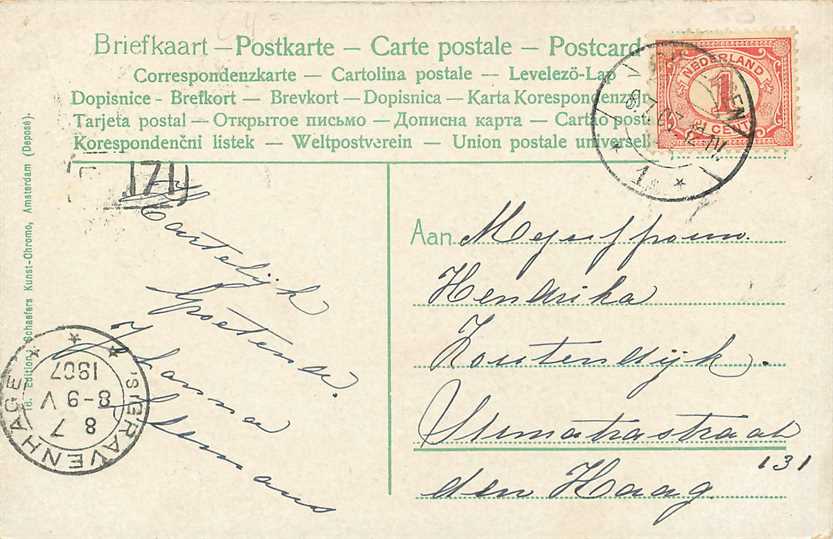 Briefkaart – Postkarte – Carte postale – Postcard
Correspondenzkarte — Cartolina postale — Levelezö-Lap
Dopisnice - Brefkort — Brevkort — Dopisnica — Karta Korespondenz
Tarjeta postal — Открытое письмо — Дописна карта — Cartão post
Korespondenční listek — Weltpostverein — Union postale universel
NEDERLAND
1
CENT
171
Hartelijk
Groetend.
Johanna
Aan Mejuffrouw
Hendrika
Houtendijk.
Sumatrastraat
131
den Haag
'S GRAVENHAGE
8 7
8-9 V
1907
18. Edition J. Schaefers Kunst-Chromo, Amsterdam (Deposé).